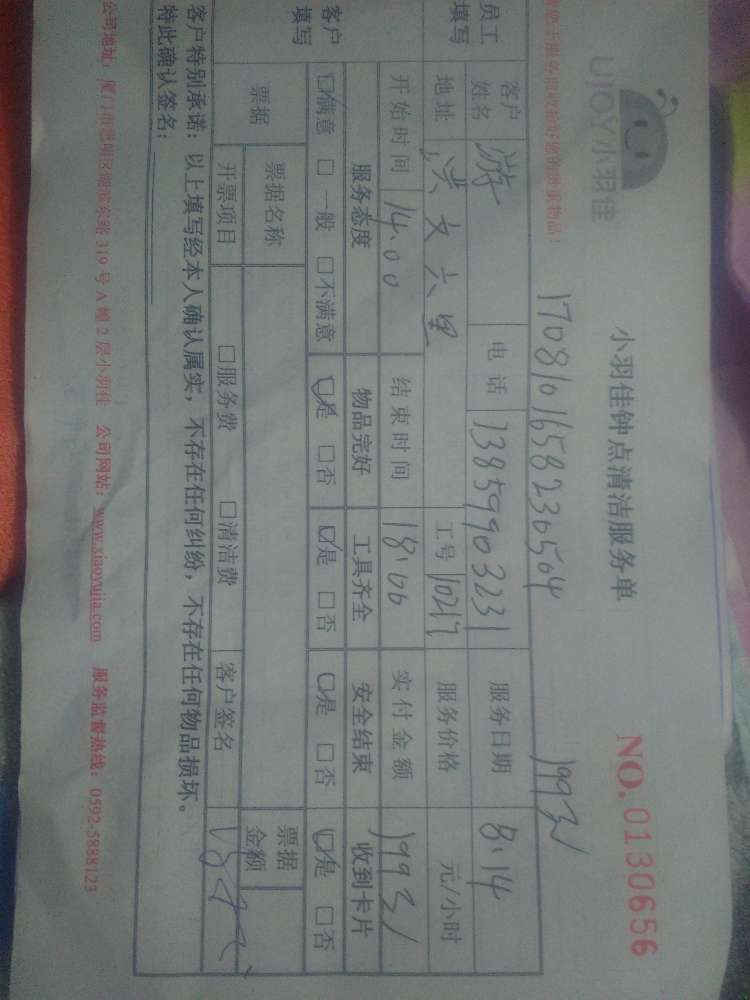 UJOY小羽佳
小羽佳钟点清洁服务单
NO. 0130656
1708101658230504
客户姓名 游 电话 13859903231 服务日期 8.14
员工填写
地址 洪文六里 工号 10217 服务价格 元/小时
开始时间 14.00 结束时间 18.00 实付金额
客户填写
服务态度 物品完好 工具齐全 安全结束 收到卡片
☑满意 □一般 □不满意 ☑是 □否 ☑是 □否 ☑是 □否 ☑是 □否
票据 票据名称 票据金额
开票项目 □服务费 □清洁费 客户签名
客户特别承诺:以上填写经本人确认属实,不存在任何纠纷,不存在任何物品损坏。
特此确认签名:
公司地址:厦门市思明区湖滨东路319号A幢2层小羽佳 公司网站:www.xiaoyujia.com 服务监督热线:0592-5888123